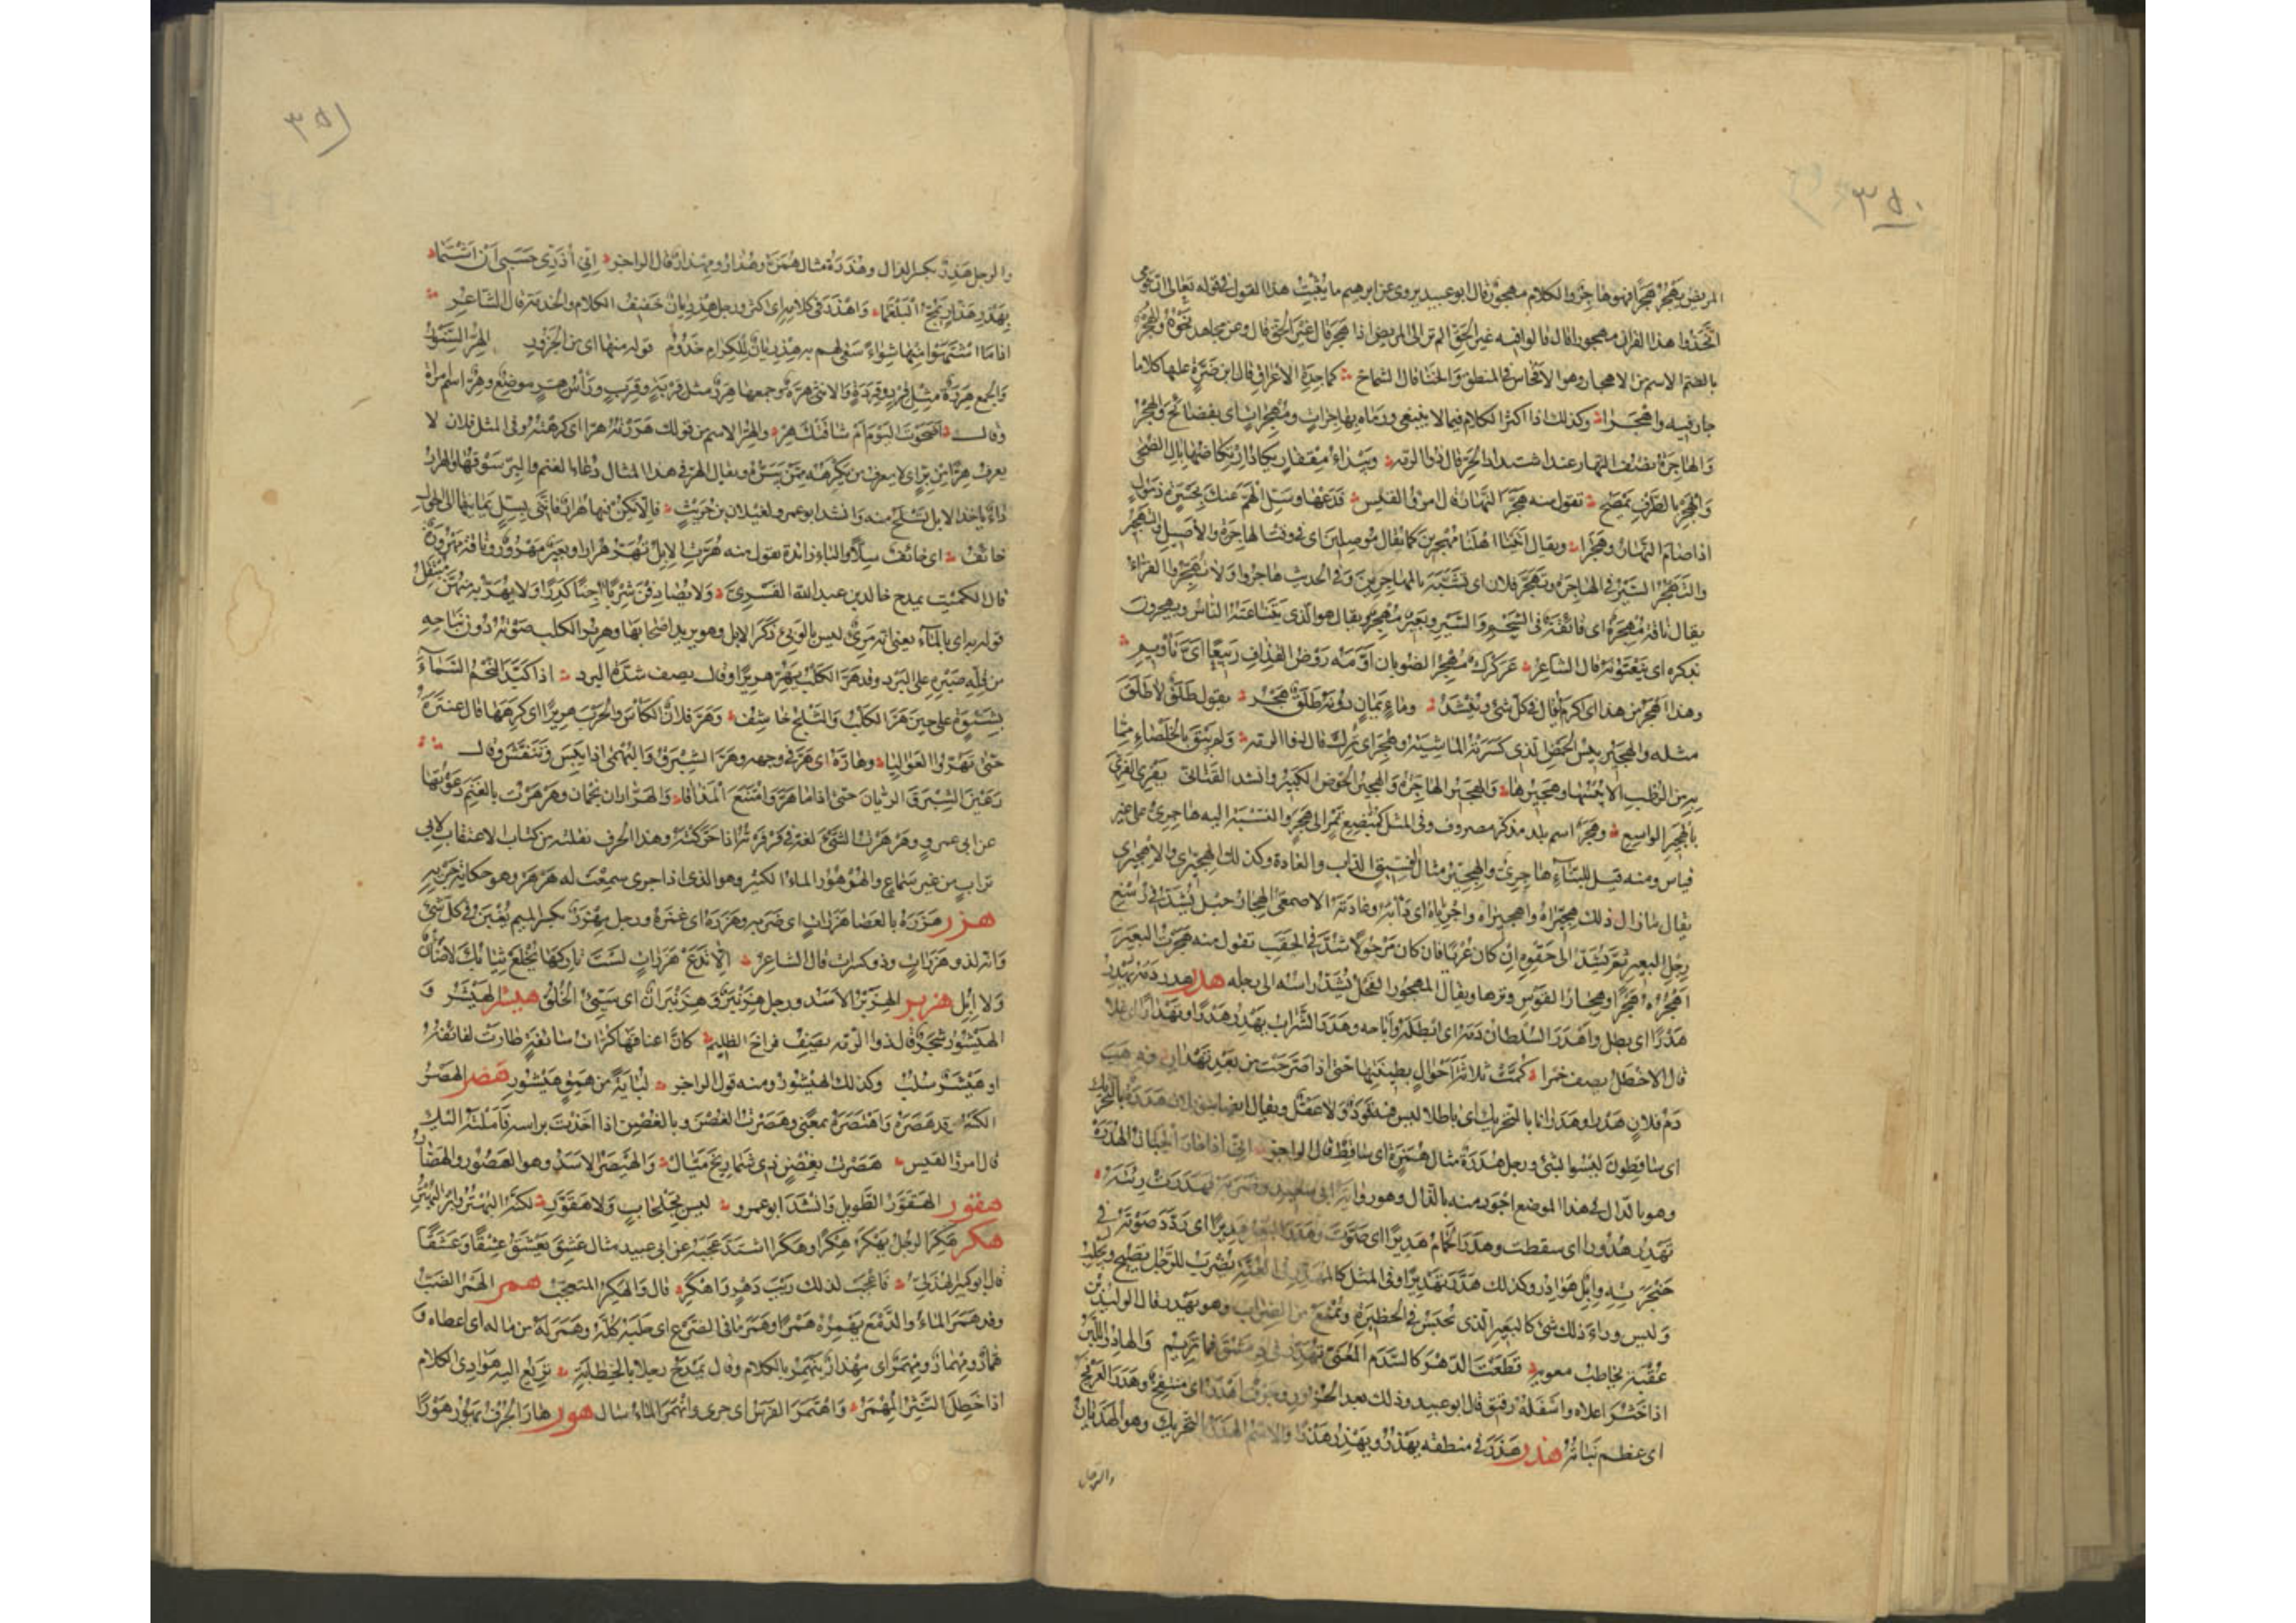 ٣٥٠
المريض يهجر هجرا فهو هاجر والكلام مهجور قال ابو عبيد يروى عن ابرهيم ما يثبت هذا القول فى قوله تعالى ان قومى
اتخذوا هذا القرآن مهجورا قال قالوا فيه غير الحق الم تر الى المريض اذا هجر قال غير الحق قال وعن مجاهد نحوه والهجر
بالضم الاسم من الاهجار وهو الافحاش فى المنطق والخنا قال الشماخ كماجدة الاعراق قال ابن ضرة عليها كلاما
جار فيه واهجرا وكذلك اذا اكثر الكلام فيما لا ينبغى ورماه بهاجرات ومهجرات اى بفضائح والهجر
والهاجرة نصف النهار عند اشتداد الحر قال ذو الرمة وبيداء مقفار يكاد ارتكاضها بآل الضحى
والهجر بالطرف يمصح تقول منه هجر النهار قال امرؤ القيس فدعها وسل الهم عنك بجسرة ذمول
اذا صام النهار وهجرا ويقال اتينا اهلنا مهجرين كما يقال موصلين اى فى وقت الهاجرة والاصيل والتهجير
والتهجر السير فى الهاجرة وتهجر فلان اى تشبه بالمهاجرين وفى الحديث هاجروا ولا تهجروا الفراء
يقال ناقة مهجرة اى فائقة فى الشحم والسير وبعير مهجر يقال هو الذى يتناعته الناس ويهجرون
بذكره اى ينعتونه قال الشاعر عركرك مهجر الضوبان اومه روض القذاف ربيعا اى تاويم
وهذا اهجر من هذا اى اكرم يقال فى كل شئ وينشد وماء يمان دونه طلق هجر يقول طلق لا طلق
مثله والهجير يبيس الحمض الذى كسرته الماشية وهجر اى ترك قال ذو الرمة ولم يبق بالخلصاء مما
به من الرطب الا يبسها وهجيرها والهجير الهاجرة والهجير الحوض الكبير وانشد القنانى يفرى الفرى
بالهجير الواسع وهجر اسم بلد مذكر مصروف وفى المثل كمبضع تمر الى هجر والنسبة اليه هاجرى على غير
قياس ومنه قيل للبناء هاجرى والهجير مثال الفسيق الداب والعادة وكذلك الهجيرى والاهجيرى
يقال ما زال ذلك هجيراه واهجيراه واجرياه اى دابه وعادته الاصمعى الهجار حبل يشد فى رسغ
رجل البعير ثم يشد الى حقوه ان كان عريا فان كان مرحولا شد فى الحقب تقول منه هجرت البعير
اهجره هجرا وهجار القوس وترها ويقال المهجور الفحل يشد راسه الى رجله هدر هدر دمه يهدر
هدرا اى بطل واهدر السلطان دمه اى ابطله واباحه وهدر الشراب يهدر هدرا وتهدارا اى غلا
قال الاخطل يصف خمرا كمت ثلاثة احوال بطينتها حتى اذا صرحت من بعد تهدار وذهب
دم فلان هدرا وهدرا بالتحريك اى باطلا ليس فيه قود ولا عقل ويقال ايضا بنو فلان هدرة بالتحريك
اى ساقطون ليسوا بشئ ورجل هدرة مثال همزة اى ساقط قال الراجز انى اذا حار الجبان الهدرة
وهو بالدال فى هذا الموضع اجود منه بالذال وهو رواية ابى سعيد وضربه فهدرت رئته
تهدر هدورا اى سقطت وهدر الحمام هديرا اى صوت وهدر البعير هديرا اى ردد صوته فى
حنجرته وابل هوادر وكذلك هدر تهديرا وفى المثل كالمهدر فى العنة يضرب للرجل يصيح ويجلب
وليس وراء ذلك شئ كالبعير الذى يحبس فى الحظيرة ويمنع من الضراب وهو يهدر قال الوليد بن
عقبة يخاطب معوية قطعت الدهر كالسدم المعنى تهدر فى دمشق فما تريم والهادر اللبن
اذا خثر اعلاه واسفله رقيق قال ابو عبيد وذلك بعد الحزور وجوف اهدر اى منتفخ وهدر العرفج
اى عظم نباته هذر هذر فى منطقه يهذر ويهذر هذرا والاسم الهذر بالتحريك وهو الهذيان
والرجل
٣٥١
والرجل هذر بكسر الذال وهذرة مثال همزة وهذار ومهذار قال الراجز انى اذرى حسبى ان اشتما
بهدر هذار يمج البلغما واهذر فى كلامه اى اكثر ورجل هذريان خفيف الكلام والخدمة قال الشاعر
اذا ما اشتهوا منها شواء سعى لهم به هذريان للكرام خدوم قوله منها اى من الجزور الهر السنور
والجمع هررة مثل قرد وقردة والانثى هرة وجمعها هرر مثل قربة وقرب وراس هر موضع وهر اسم امراة
وقال اصحوت اليوم ام شاقتك هر والهر الاسم من قولك هررته هرا اى كرهته وفى المثل فلان لا
يعرف هرا من بر اى لا يعرف من يكرهه ممن يبره ويقال الهر فى هذا المثال دعاء الغنم والبر سوقها والهرار
داء ياخذ الابل تسلح منه وانشد ابو عمرو لغيلان بن حريث فالا يكن فيها هرار فاننى بسل يمانيها الى الحول
خائف اى خائف سلا والباء زائدة تقول منه هرت الابل تهر هرارا وبعير مهرور وناقة مهرورة
قال الكميت يمدح خالد بن عبد الله القسرى ولا يصادفن شربا آجنا كدرا ولا يهر به منهن مبتقل
قوله به اى بالماء يعنى انه مرئ ليس بالوبئ ذكر الابل وهو يريد اصحابها وهرير الكلب صوته دون نباحه
من قلة صبره على البرد وقد هر الكلب يهر هريرا وقال يصف شدة البرد اذا كبد النجم السماء
بشتوة على حين هر الكلب والثلج خاشف وهر فلان الكاس والحرب هريرا اى كرهها قال عنترة
حتى تهروا العواليا وهاره اى هر فى وجهه وهر الشبرق والبهمى اذا يبس وتنفش وقال
رعين الشبرق الريان حتى اذا ما هر وامتنع المذاقا والهراران نجمان وهرهرت بالغنم دعوتها
عن ابى عمرو وهرهرت الشئ لغة فى فرفرته اذا حركته وهذا الحرف نقلته من كتاب الاعتقاب لابى
تراب من غير سماع والهرهور الماء الكثير وهو الذى اذا جرى سمعت له هرهر وهو حكاية جريه
هزر هزره بالعصا هزرات اى ضربه وهزره اى غمزه ورجل مهزر بكسر الميم يغبن فى كل شئ
وانه لذو هزرات وذو كسرات قال الشاعر الا تدع هزرات لست تاركها تخلع ثيابك لا ضان
ولا ابل هزبر الهزبر الاسد ورجل هزنبر وهزنبران اى سيئ الخلق هيشر الهيشر و
الهيشور شجر قال ذو الرمة يصف فراخ الظليم كان اعناقها كراث سائفة طارت لفائفه
او هيشر سلب وكذلك الهيشور ومنه قول الراجز لباية من همق هيشور هصر الهصر
الكسر قد هصره واهتصره بمعنى وهصرت الغصن وبالغصن اذا اخذت براسه فاملته اليك
قال امرؤ القيس هصرت بغصن ذى شماريخ ميال والهيصر الاسد وهو الهصور والهصار
هقور الهقور الطويل وانشد ابو عمرو ليس بجلحاب ولا هقور لكنه البهتر وابن البهتر
هكر هكر الرجل يهكر هكرا وهكرا اشتد عجبه عن ابى عبيد مثال عشق يعشق عشقا وعشقا
قال ابو كبير الهذلى فاعجب لذلك ريب دهر واهكر قال والهكر المتعجب همر الهمر الصب
وقد همر الماء والدمع يهمره همرا وهمر ما فى الضرع اى حلبه كله وهمر له من ماله اى اعطاه و
همار ومهمار ومهمر اى مهذار ينهمر بالكلام وقال يمدح رجلا بالخطابة تريغ اليه هوادى الكلام
اذا خطل النثر المهمر واهتمر الفرس اى جرى وانهمر الماء سال هور هار الجرف يهور هورا